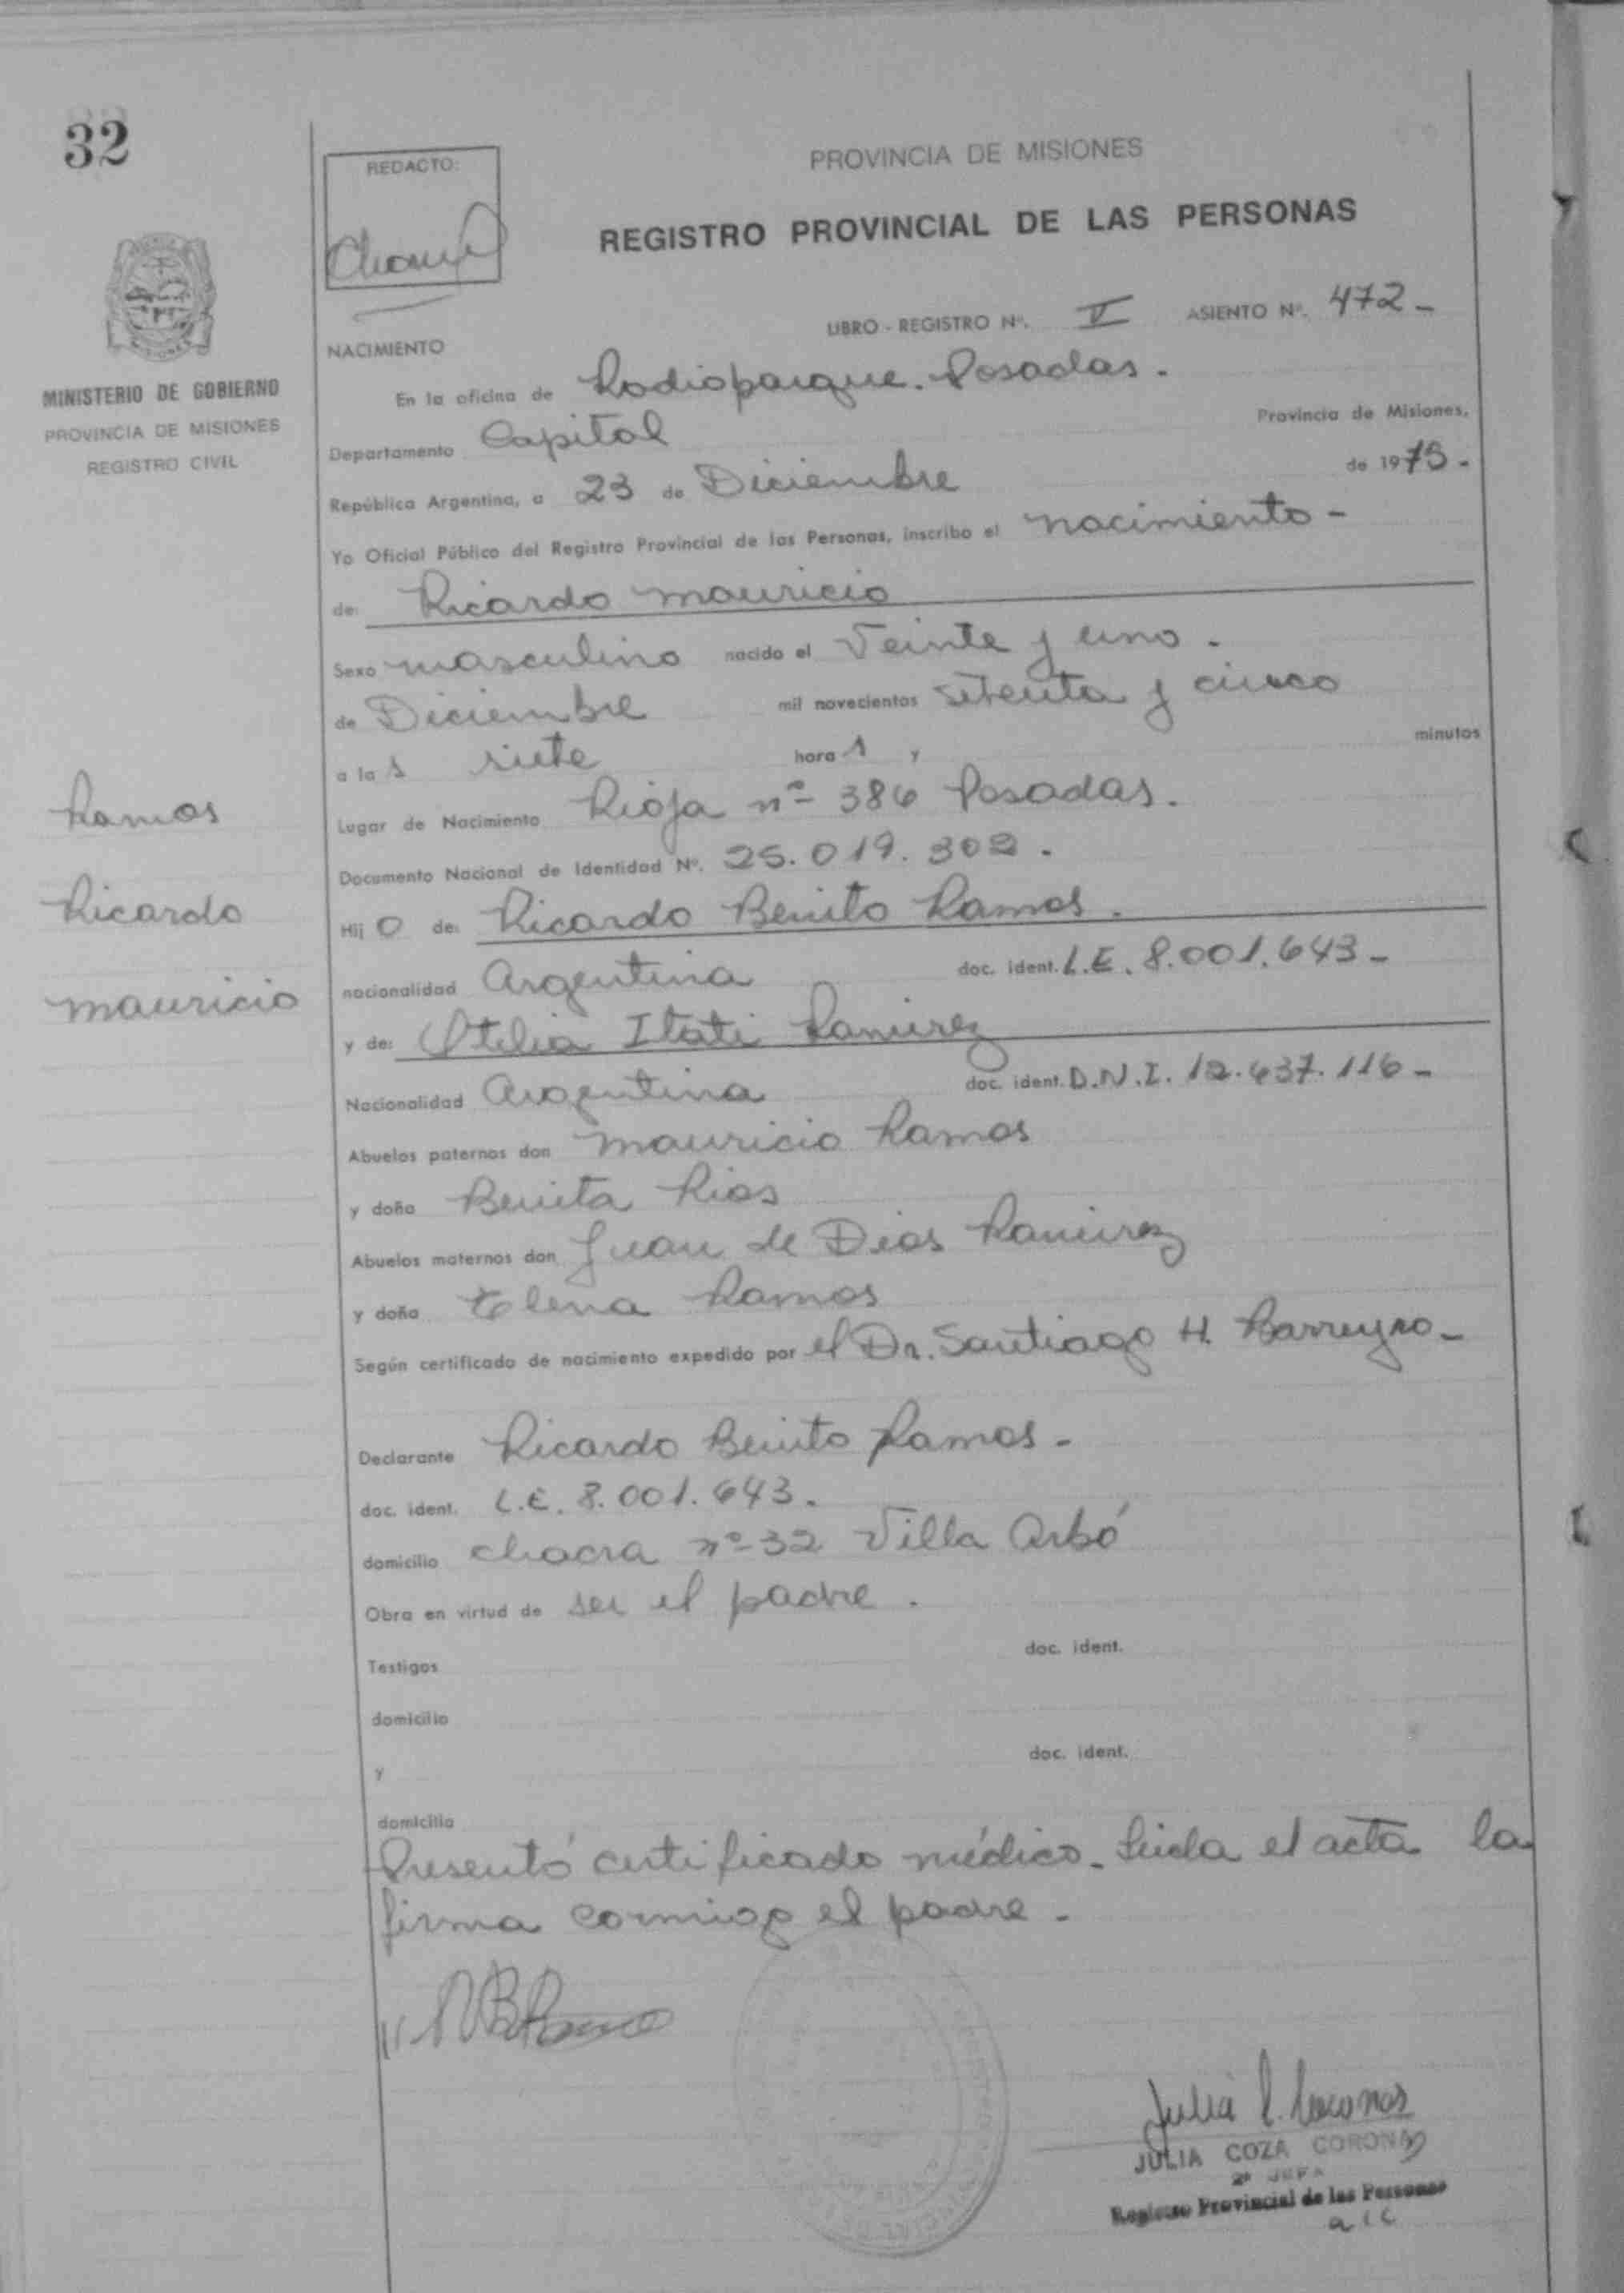 32
REDACTO:
PROVINCIA DE MISIONES
REGISTRO PROVINCIAL DE LAS PERSONAS
LIBRO - REGISTRO Nº. V ASIENTO Nº. 472-
MINISTERIO DE GOBIERNO
PROVINCIA DE MISIONES
REGISTRO CIVIL
NACIMIENTO
En la oficina de Radioparque. Posadas.
Departamento Capital Provincia de Misiones,
República Argentina, a 23 de Diciembre de 1975.-
Yo Oficial Público del Registro Provincial de las Personas, inscribo el nacimiento-
de: Ricardo Mauricio
Sexo masculino nacido el Veinte y uno.
de Diciembre mil novecientos setenta y cinco
a la s siete hora s y minutos
Lugar de Nacimiento Rioja nº 386 Posadas.
Documento Nacional de Identidad Nº. 25.019.302.
Hij o de: Ricardo Benito Ramos.
nacionalidad Argentina doc. ident. L.E. 8.001.643-
y de: Otilia Itati Ramirez
Nacionalidad Argentina doc. ident. D.N.I. 12.637.116-
Abuelos paternos don Mauricio Ramos
y doña Benita Rios
Abuelos maternos don Juan de Dios Ramirez
y doña Elena Ramos
Según certificado de nacimiento expedido por el Dr. Santiago H. Barreyro-
Declarante Ricardo Benito Ramos-
doc. ident. L.E. 8.001.643.
domicilio chacra nº 32 Villa Arbó
Obra en virtud de ser el padre.
Testigos doc. ident.
domicilio
y doc. ident.
domicilio
Presentó certificado médico. Leida el acta la
firma conmigo el padre.
Ramos
Ricardo
Mauricio
JULIA COZA CORONAS
2ª JEFA
Registro Provincial de las Personas